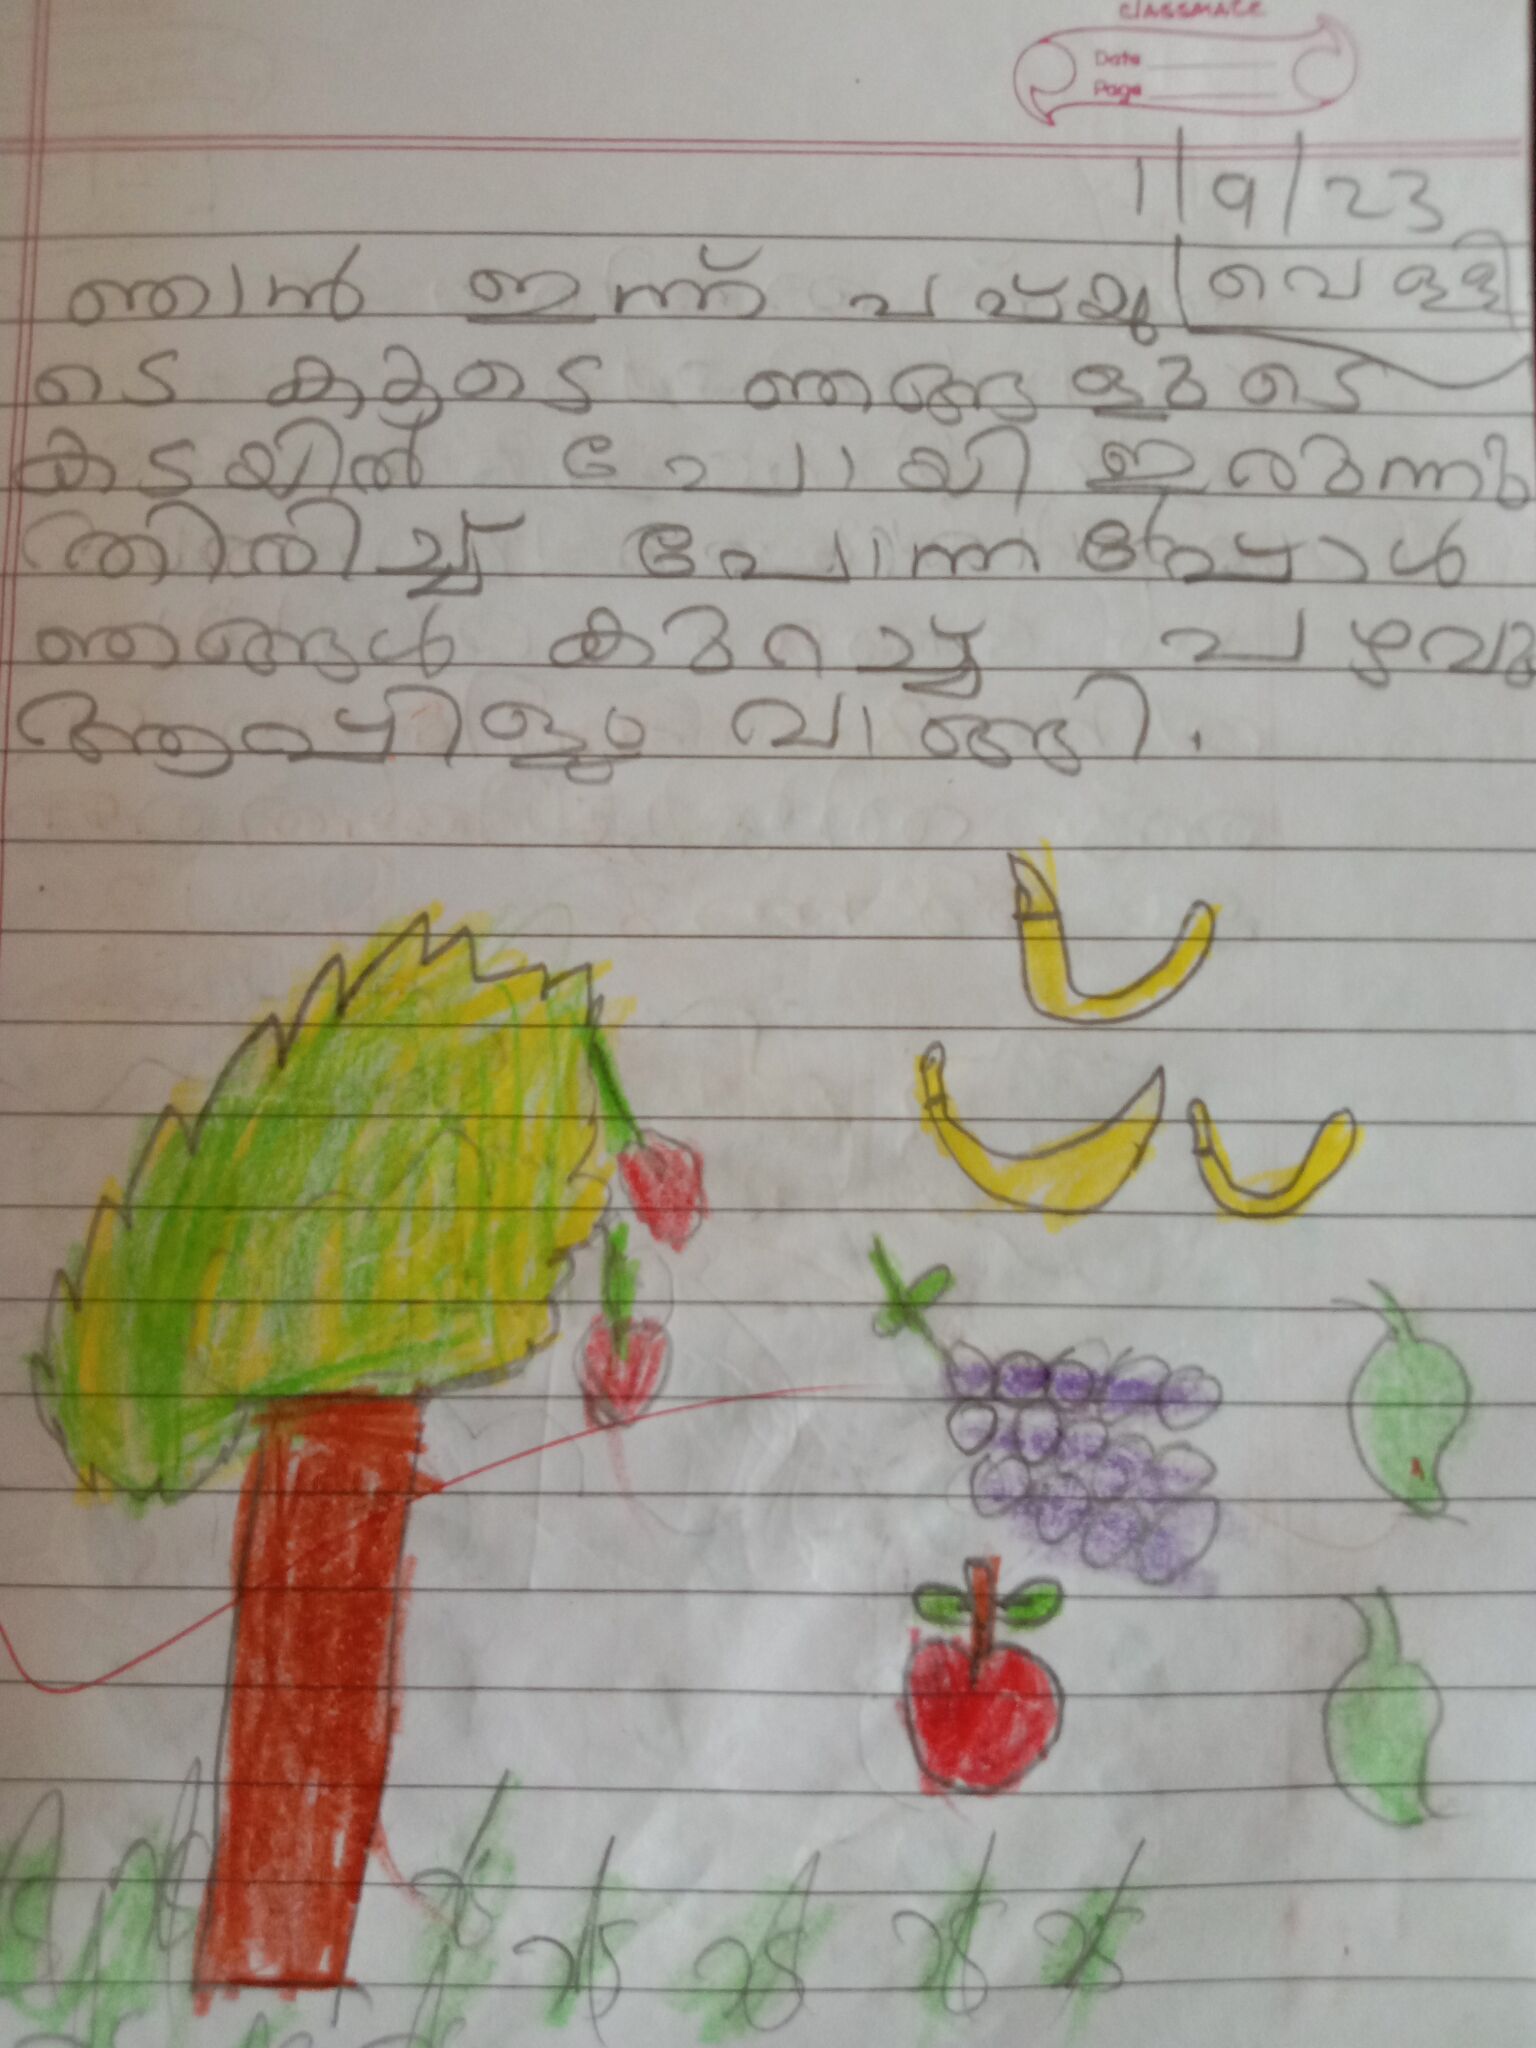 classmate
Date
Page
1/9/23
വെള്ളി
ഞാൻ ഇന്ന് പപ്പയു
ടെ കൂടെ ഞങ്ങളുടെ
കടയിൽ പോയി ഇരുന്നു
തിരിച്ച് പോന്നപ്പോൾ
ഞങ്ങൾ കുറച്ച് പഴവു
ആപ്പിളും വാങ്ങി.